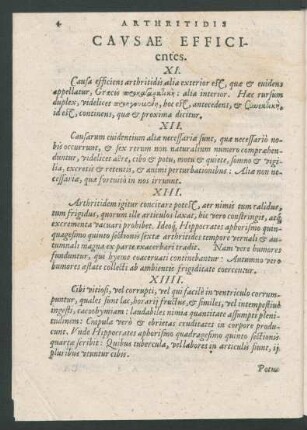 4 ARTHRITIDIS
CAVSAE EFFICI-
entes.
XI.
Causa efficiens arthritidis alia exterior est, quæ & euidens
appellatur, Græcis προκαταρκτικὴ: alia interior. Hæc rursum
duplex, videlicet προηγουμένη, hoc est, antecedens, & συνεκτικὴ,
id est, continens, quæ & proxima dicitur.
XII.
Causarum euidentium aliæ necessariæ sunt, quæ necessariò no-
bis occurrunt, & sex rerum non naturalium numero comprehen-
duntur, videlicet aëre, cibo & potu, motu & quiete, somno & vigi-
lia, excretis & retentis, & animi perturbationibus: Aliæ non ne-
cessariæ, quæ fortuitò in nos irruunt.
XIII.
Arthritidem igitur concitare potest, aer nimis tum calidus,
tum frigidus, quorum ille articulos laxat, hic verò constringit, atque
excrementa vacuari prohibet. Ideoque Hippocrates aphorismo quin-
quagesimo quinto sectionis sextæ arthritides tempore vernali & au-
tumnali magna ex parte exacerbari tradit. Nam vere humores
funduntur, qui hyeme coacernati continebantur: Autumno verò
humores æstate collecti ab ambientis frigiditate coërcentur.
XIIII.
Cibi vitiosi, vel corrupti, vel qui facilè in ventriculo corrum-
puntur, quales sunt lac, horarij fructus, & similes, vel intempestiuè
ingesti, cacochymiam: laudabiles nimia quantitate assumpti pleni-
tudinem: Crapula verò & ebrietas cruditates in corpore produ-
cunt. Vnde Hippocrates aphorismo quadragesimo quinto sectionis
quartæ scribit: Quibus tubercula, vel labores in articulis fiunt, ij
pluribus vtuntur cibis.
Potus